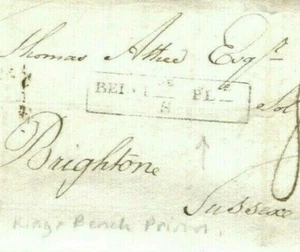 Thomas Attree Esqr
Sol
Brightone
Sussex
Kings Bench Prison.